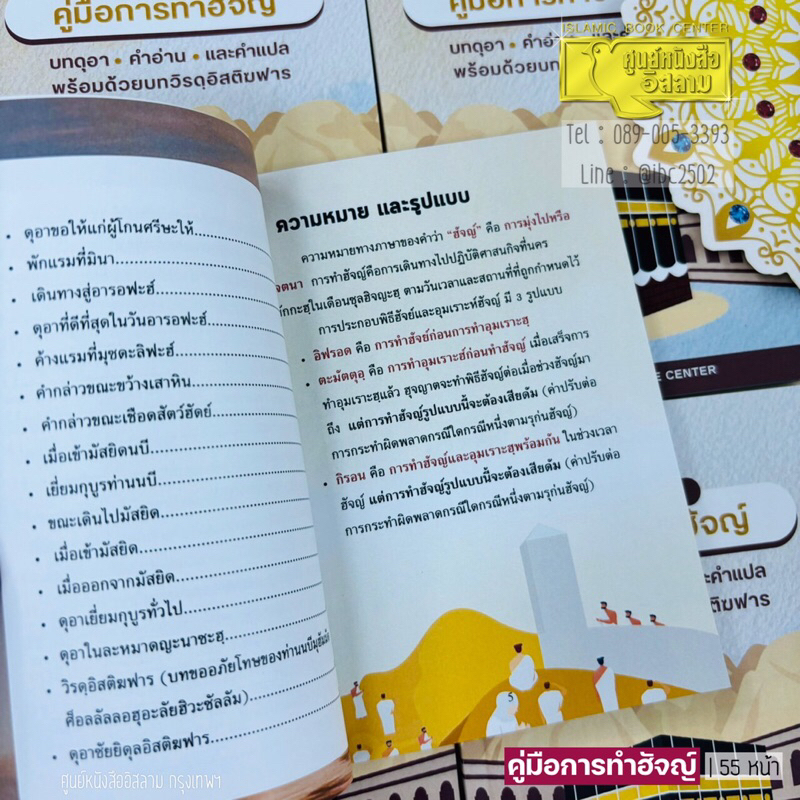 คู่มือการทำฮัจญ์
บทดุอา • คำอ่าน • และคำแปล
พร้อมด้วยบทวิรดุอิสติฆฟาร
คู่มือการทำ
บทดุอา • คำอ่า
พร้อมด้วยบท
ISLAMIC BOOK CENTER
ศูนย์หนังสือ
อิสลาม
Tel : 089-005-3393
Line : @ibc2502
• ดุอาขอให้แก่ผู้โกนศรีษะให้
• พักแรมที่มีนา
• เดินทางสู่อารอฟะฮ์
• ดุอาที่ดีที่สุดในวันอารอฟะฮ์
• ค้างแรมที่มุซดะลิฟะฮ์
• คำกล่าวขณะขว้างเสาหิน
• คำกล่าวขณะเชือดสัตว์ฮัดย์
• เมื่อเข้ามัสยิดนบี
• เยี่ยมกุบูรท่านนบี
• ขณะเดินไปมัสยิด
• เมื่อเข้ามัสยิด
• เมื่อออกจากมัสยิด
• ดุอาเยี่ยมกุบูรทั่วไป
• ดุอาในละหมาดญะนาซะฮฺ
• วิรดุอิสติฆฟาร (บทขออภัยโทษของท่านนบีมุฮัมมัด
ศ็อลลัลลอฮุอะลัยฮิวะซัลลัม)
• ดุอาชัยยิดุลอิสติฆฟาร
ความหมาย และรูปแบบ
ความหมายทางภาษาของคำว่า "ฮัจญ์" คือ การมุ่งไปหรือ
เจตนา การทำฮัจญ์คือการเดินทางไปปฏิบัติศาสนกิจที่นคร
มักกะฮฺในเดือนซุลฮิจญะฮฺ ตามวันเวลาและสถานที่ที่ถูกกำหนดไว้
การประกอบพิธีฮัจย์และอุมเราะห์ฮัจญ์ มี 3 รูปแบบ
• อิฟรอด คือ การทำฮัจย์ก่อนการทำอุมเราะฮฺ
• ตะมัตตุอฺ คือ การทำอุมเราะฮ์ก่อนทำฮัจญ์ เมื่อเสร็จการ
ทำอุมเราะฮฺแล้ว ฮุจญาตจะทำพิธีฮัจญ์ต่อเมื่อช่วงฮัจญ์มา
ถึง แต่การทำฮัจญ์รูปแบบนี้จะต้องเสียดัม (ค่าปรับต่อ
การกระทำผิดพลาดกรณีใดกรณีหนึ่งตามรุก่นฮัจญ์)
• กิรอน คือ การทำฮัจญ์และอุมเราะฮฺพร้อมกัน ในช่วงเวลา
ฮัจญ์ แต่การทำฮัจญ์รูปแบบนี้จะต้องเสียดัม (ค่าปรับต่อ
การกระทำผิดพลาดกรณีใดกรณีหนึ่งตามรุก่นฮัจญ์)
5
CENTER
ฮัจญ์
ะคำแปล
สติฆฟาร
คู่มือการทำฮัจญ์ | 55 หน้า
ศูนย์หนังสืออิสลาม กรุงเทพฯ